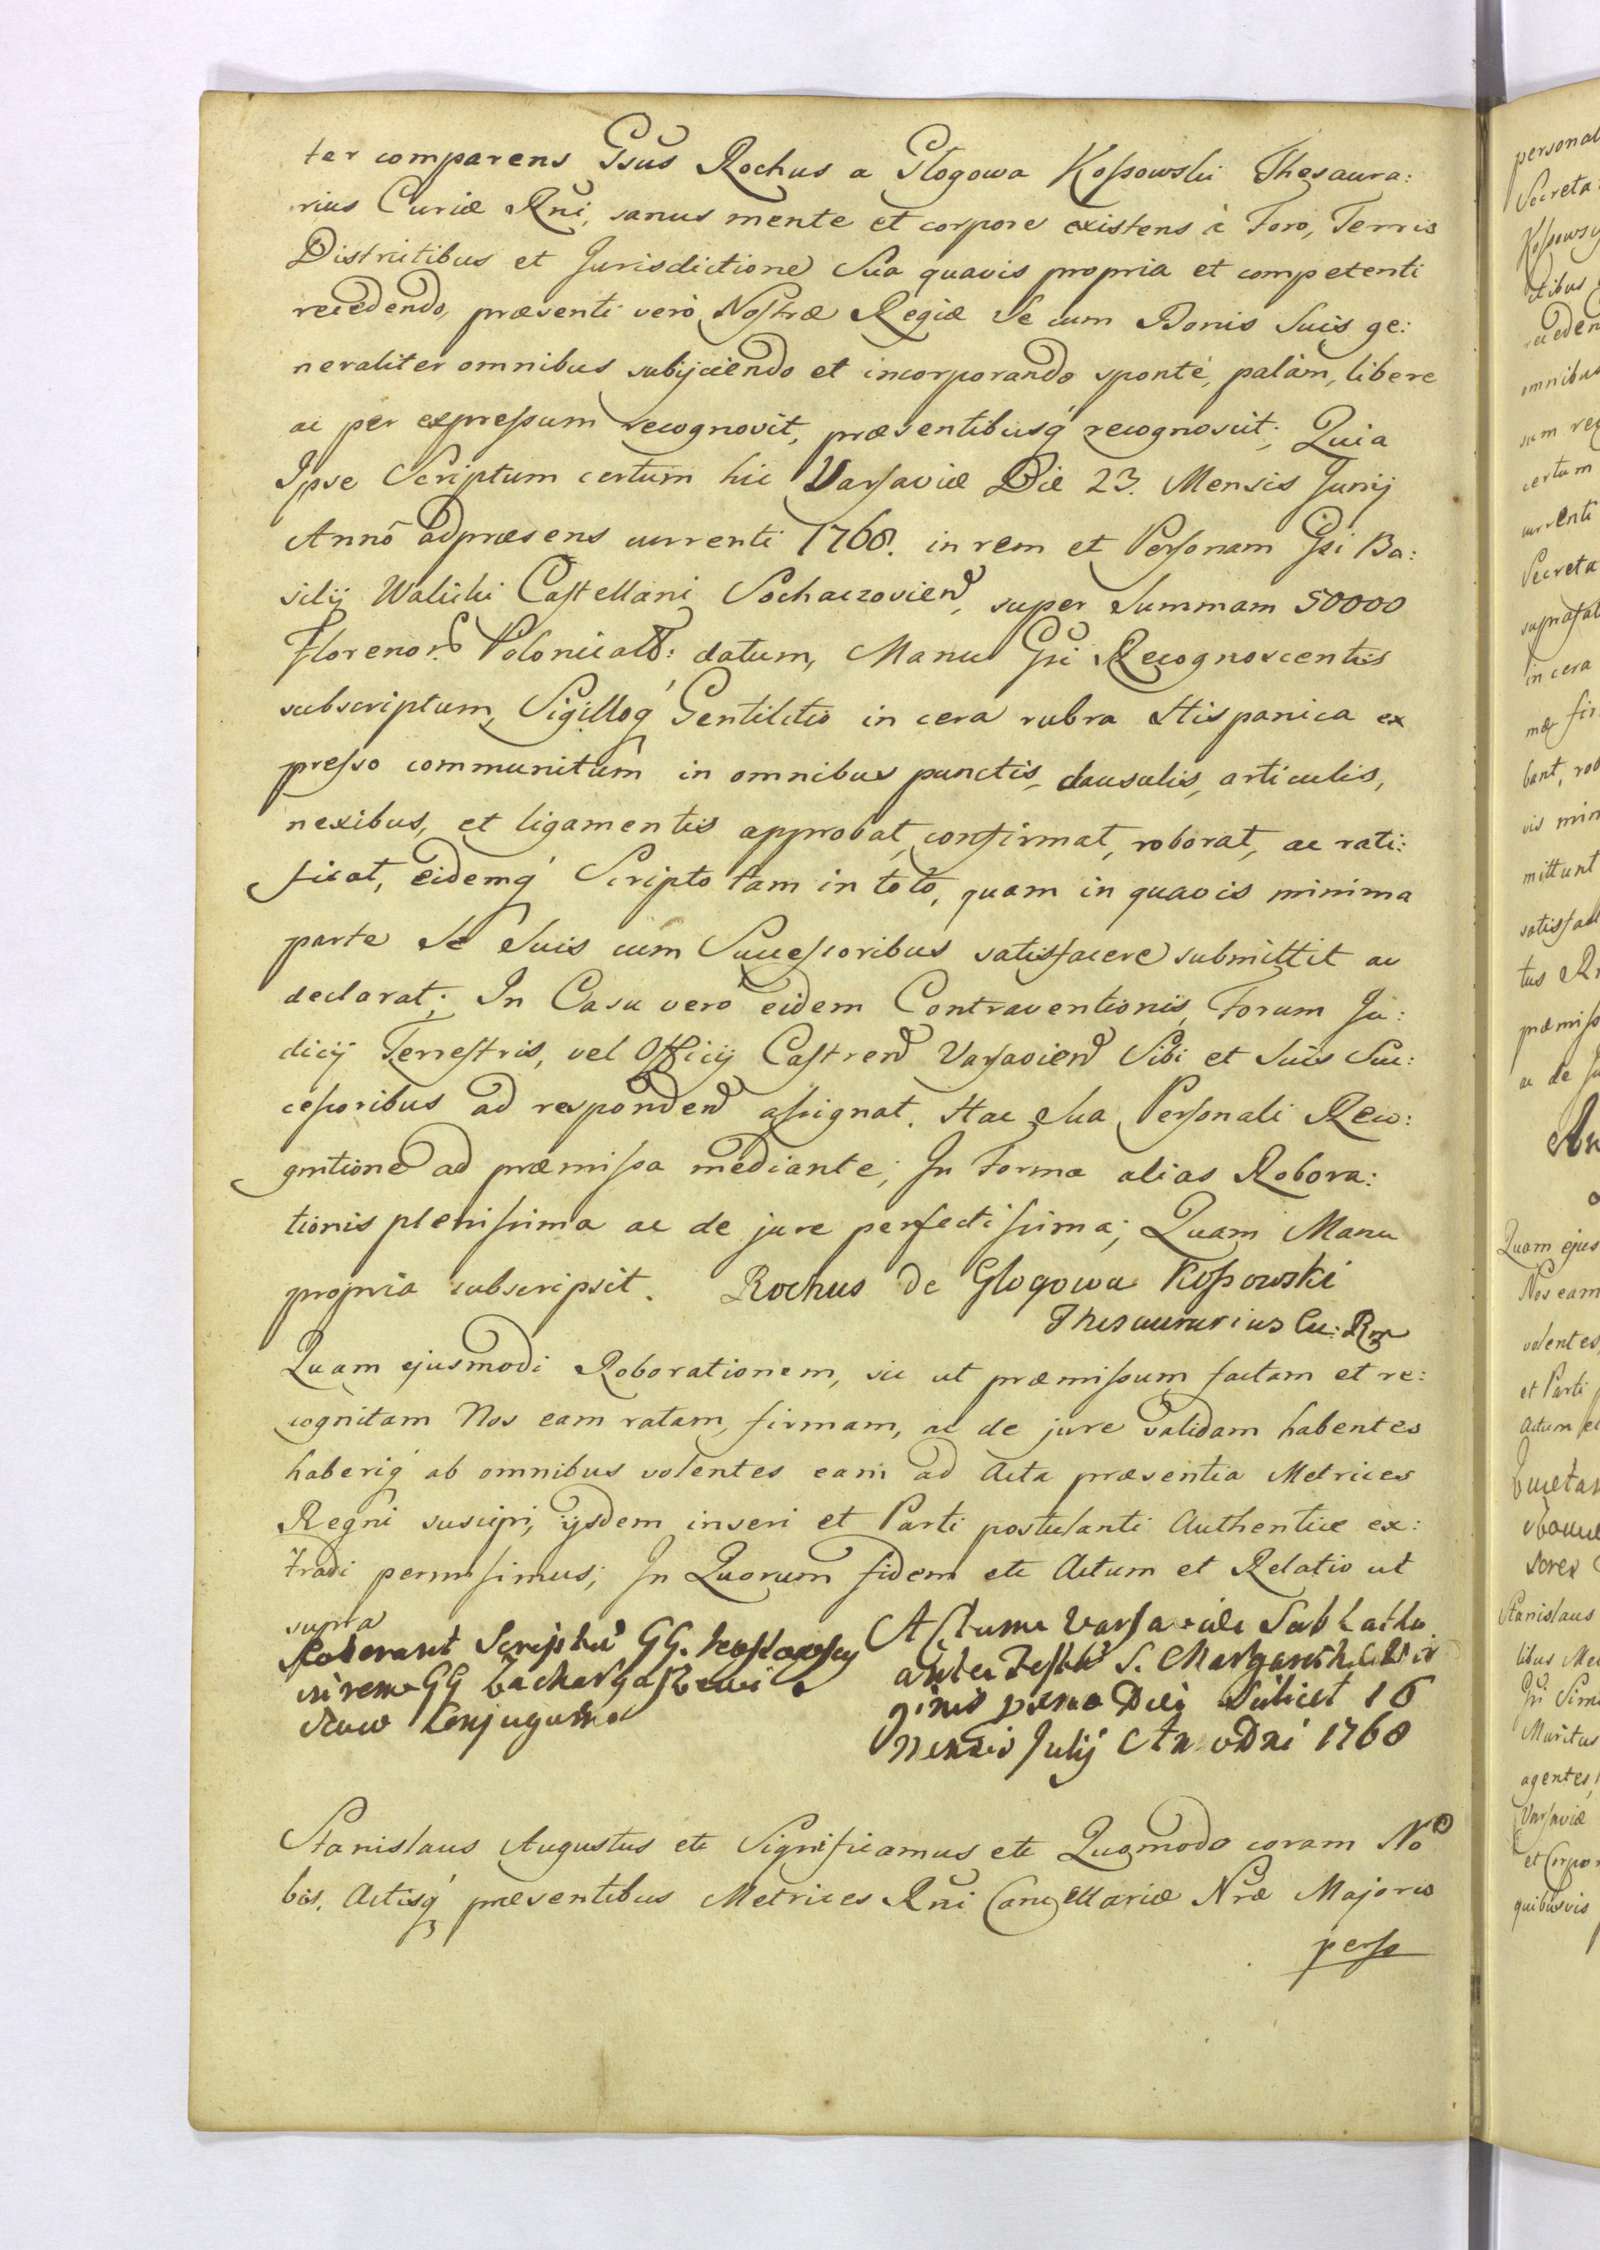 ter comparens Gsus Rochus a Glogowa Kossowski Thesaura:
rius Curiæ Rni, sanus mente et corpore existens à Foro, Terris
Districtibus et Jurisdictione Sua quavis propria et competenti
recedendo, præsenti verò Nostræ Regiæ Se cum Bonis Suis ge:
neraliter omnibus subijciendo et incorporando spontè, palàm, libere
ac per expressum recognovit, præsentibusq recognoscit; Quia
Ipse Scriptum certum hic Varsaviæ Die 23. Mensis Junij
Annô adpræsens currenti 1768. in rem et Personam Gsi Ba:
silij Walicki Castellani Sochaczovien, super Summam 50000
Florenor. Polonical: datum, Manu Gsi Recognoscentis
subscriptum, Sigilloq Gentilitio in cera rubra Hispanica ex
presso communitum in omnibus punctis, clausulis, articulis,
nexibus, et ligamentis approbat, confirmat, roborat, ac rati:
ficat, eidemq Scripto tam in toto, quam in quavis minima
parte Se Suis cum Successoribus satisfacere submittit ac
declarat; In Casu vero eidem Contraventionis, Forum Ju:
dicij Terrestris, vel Officij Castren Varsavien Sibi et Suis Suc:
cessoribus ad responden assignat. Hac Sua Personali Reco:
gnitione ad præmissa mediante; In Forma alias Robora:
tionis plenissima ac de jure perfectissima; Quam Manu
propria subscripsit. Rochus de Glogowa Kossowski
Thesaurarius Cu: Rni
Quam ejusmodi Roborationem, sic ut præmissum factam et re:
cognitam Nos eam ratam, firmam, ac de jure validam habentes
haberiq ab omnibus volentes eam ad Acta præsentia Metrices
Regni suscipi, ijsdem inseri et Parti postulanti Authentice ex:
tradi permissimus; In Quorum fidem etc Actum et Relatio ut
supra
Roborant Scriptu GG.
in rem GG
Conjugum
Actum Varsaviæ Sabbatho
ante Festu S. Margarethæ Vir
ginis Die Scilicet 16
Mensis Julij Ano Dni 1768
Stanislaus Augustus etc Significamus etc Quomodo coram No
bis, Actisq præsentibus Metrices Rni Cancellariæ Nræ Majoris
perso